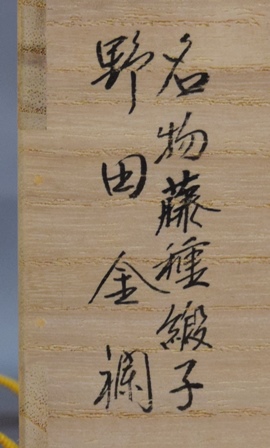 名物藤種緞子
野田金襴